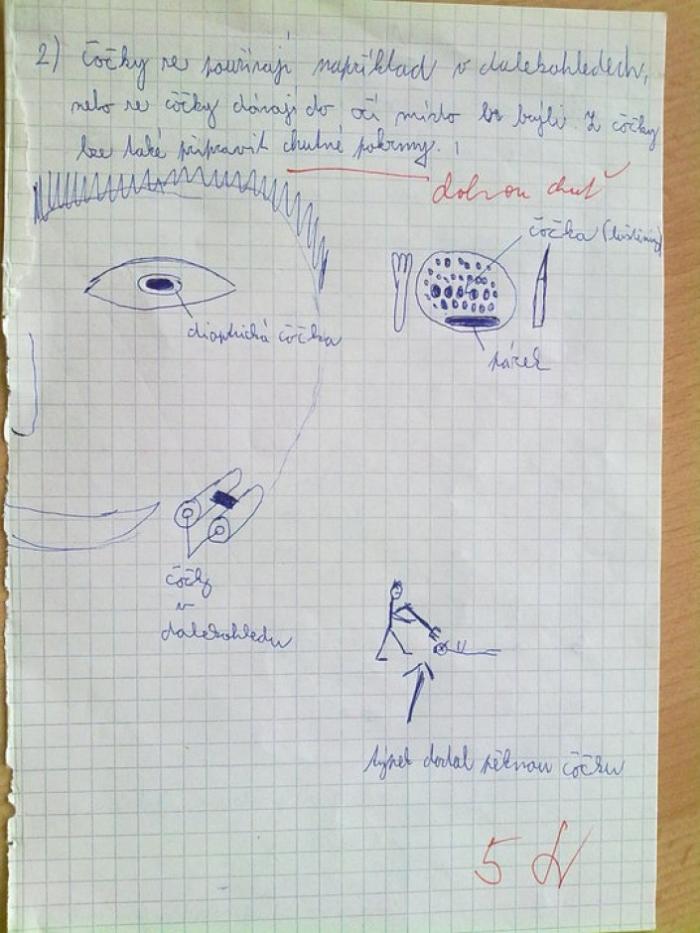 2) čočky se používají například v dalekohledech,
nebo se čočky dávají do očí místo br brýlí. Z čočky
lze také připravit chutné pokrmy.
dobrou chuť
čočka (luštěnina)
dioptrická čočka
párek
čočky
v
dalekohledu
týpek dostal pěknou čočku
5